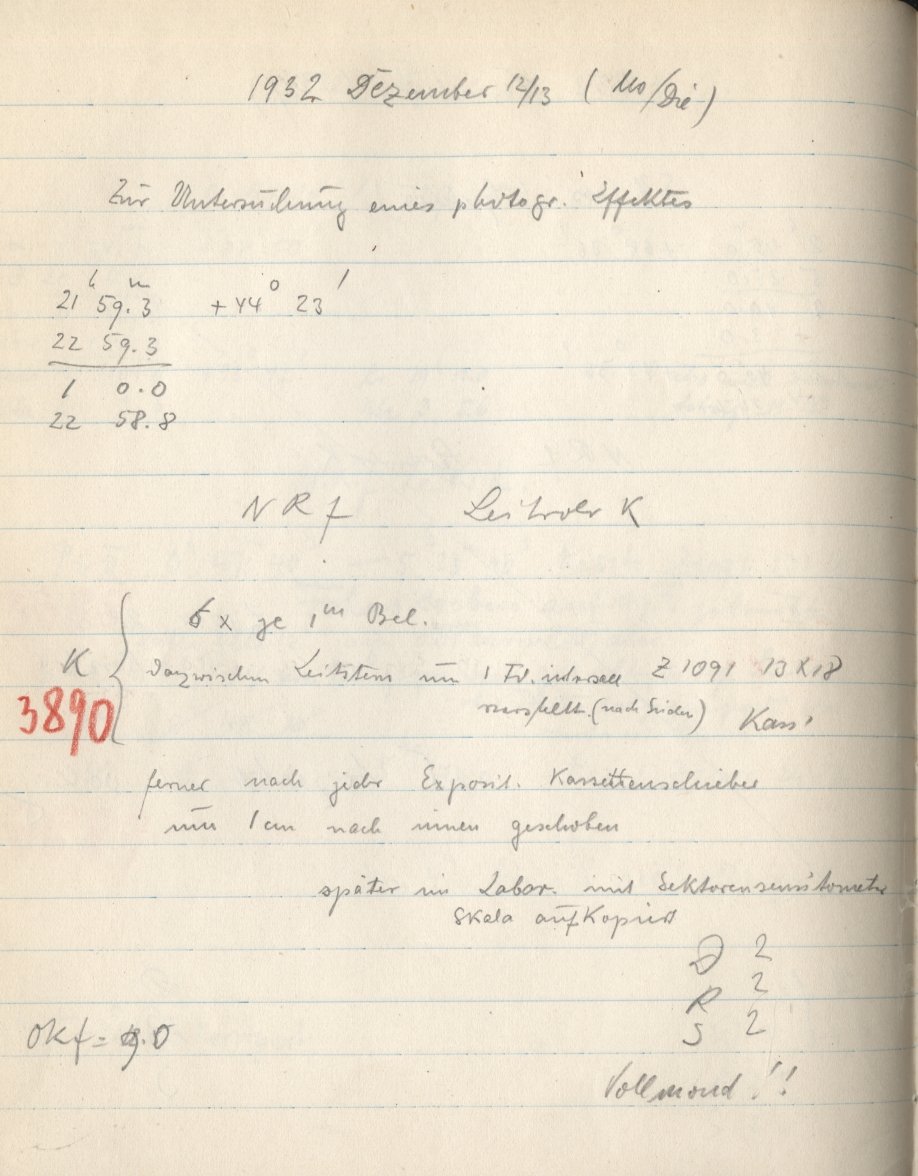 1932 Dezember 12/13 (Mo/Die)
Zur Untersuchung eines photogr. Effektes
21h 59.m3 +44° 23'
22 59.3
1 0.0
22 58.8
NRf Leitrohr K
6 x je 1m Bel.
K
dazwischen Leitstern um 1 Z 1091 13x18
verstellt. (nach Süden) Kass'
3890
ferner nach jeder Exposit. Kassettenschieber
um 1cm nach innen geschoben
später im Labor. mit Sektorensensitometer
Skala aufkopiert
D 2
R 2
S 2
Okf = 9.0
Vollmond!!